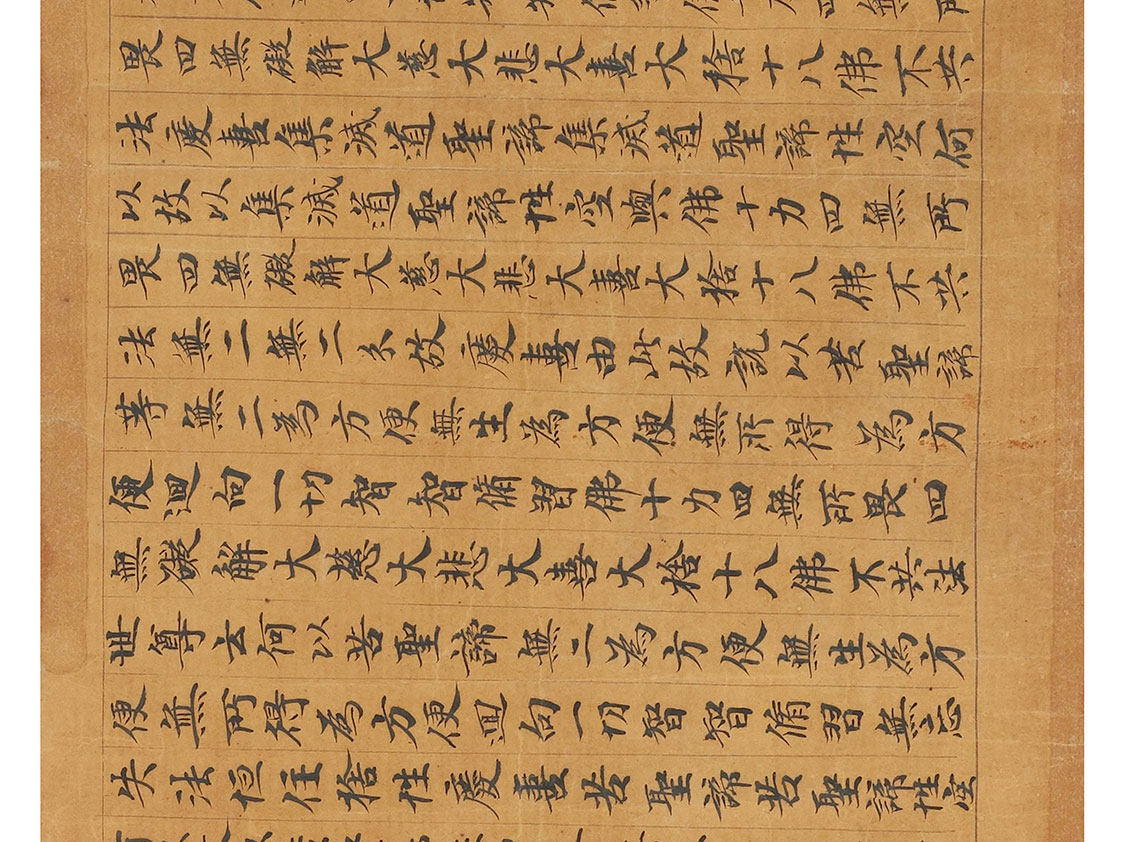 畏四無礙解大慈大悲大喜大捨十八佛不共
法慶喜集滅道聖諦集滅道聖諦性空何
以故以集滅道聖諦性空與佛十力四無所
畏四無礙解大慈大悲大喜大捨十八佛不共
法無二無二分故慶喜由此故說以苦聖諦
等無二為方便無生為方便無所得為方
便迴向一切智智脩習佛十力四無所畏四
無礙解大慈大悲大喜大捨十八佛不共法
世尊云何以苦聖諦無二為方便無生為方
便無所得為方便迴向一切智智脩習無忘
失法恒住捨性慶喜苦聖諦苦聖諦性空